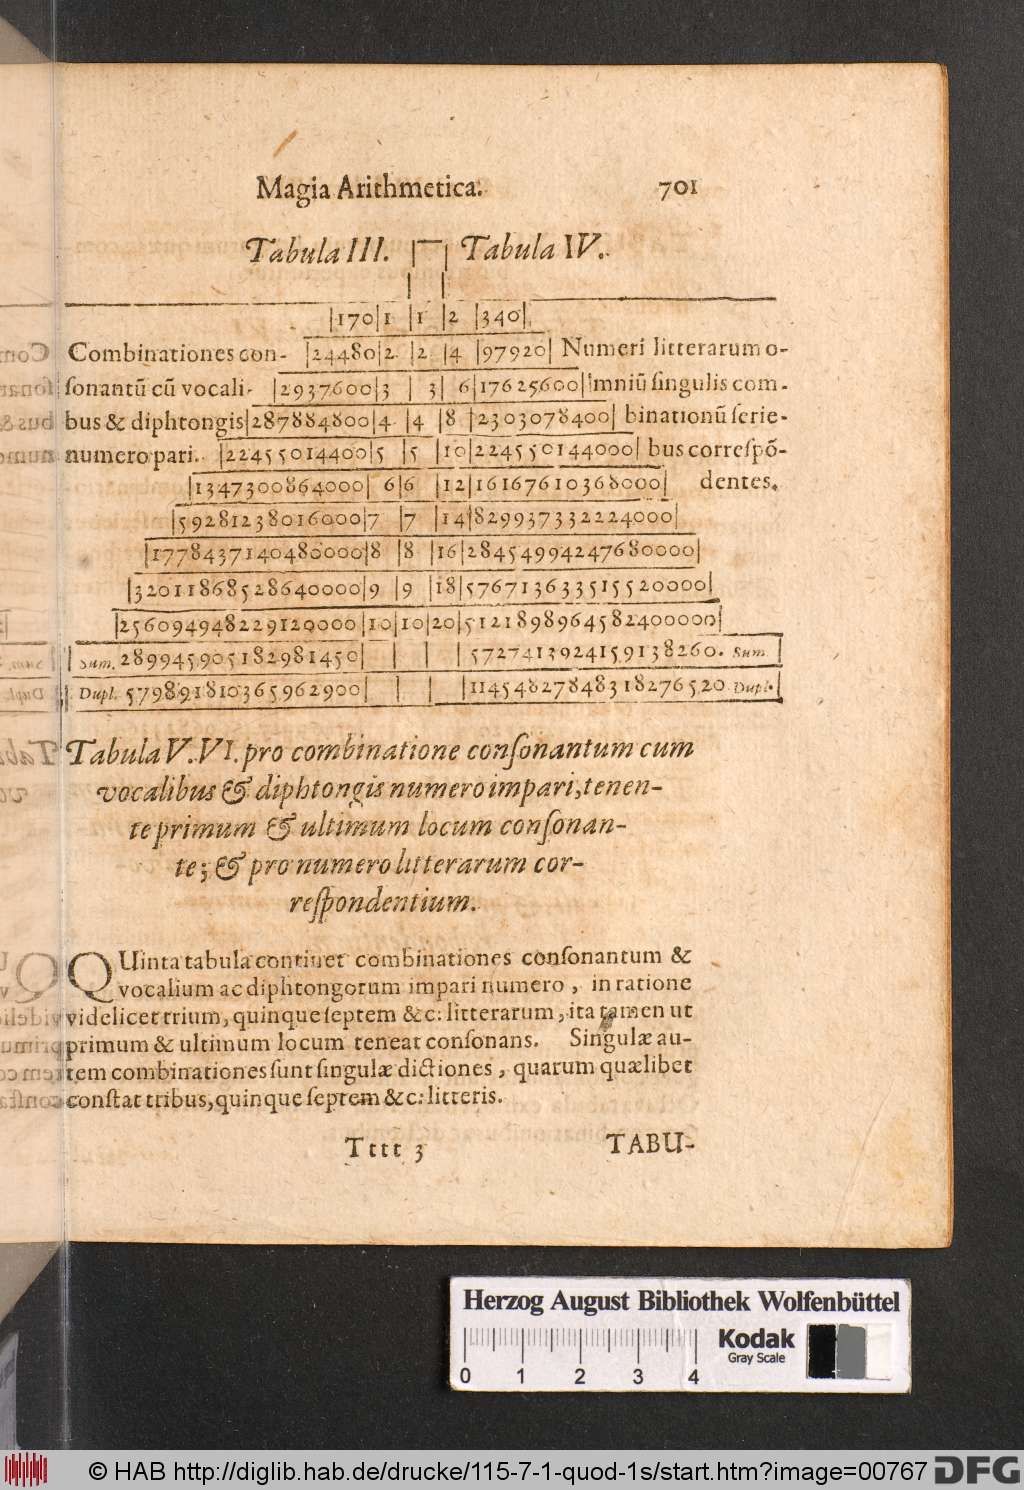 Magia Arithmetica. 701
Tabula III. Tabula IV.
|170|1 |1 |2 |340|
Combinationes con- |24480|2 |2 |4 |97920| Numeri litterarum o-
sonantũ cũ vocali- |2937600|3 | 3| 6|17625600| mniũ singulis com-
bus & diphtongis |287884800|4 |4 |8 |2303078400| binationũ serie-
numero pari. |22455014400|5 |5 |10|224550144000| bus correspõ-
|1347300864000| 6|6 |12|16167610368000| dentes.
|59281238016000|7 |7 |14|829937332224000|
|1778437140480000|8 |8 |16|28454994247680000|
|32011868528640000|9 |9 |18|576713633515520000|
|256094948229120000|10|10|20|5121898964582400000|
| Sum. 289945905182981450| | | | 5727413924159138260. Sum |
| Dupl. 579891810365962900| | | |11454827848318276520 Dupl.
Tabula V. VI. pro combinatione consonantum cum
vocalibus & diphtongis numero impari, tenen-
te primum & ultimum locum consonan-
te; & pro numero litterarum cor-
respondentium.
QUinta tabula continet combinationes consonantum &
vocalium ac diphtongorum impari numero, in ratione
videlicet trium, quinque septem &c: litterarum, ita tamen ut
primum & ultimum locum teneat consonans. Singulæ au-
tem combinationes sunt singulæ dictiones, quarum quælibet
constat tribus, quinque septem &c: litteris.
Tttt 3 TABU-
Herzog August Bibliothek Wolfenbüttel
0 1 2 3 4
Kodak
Gray Scale
© HAB http://diglib.hab.de/drucke/115-7-1-quod-1s/start.htm?image=00767 DFG